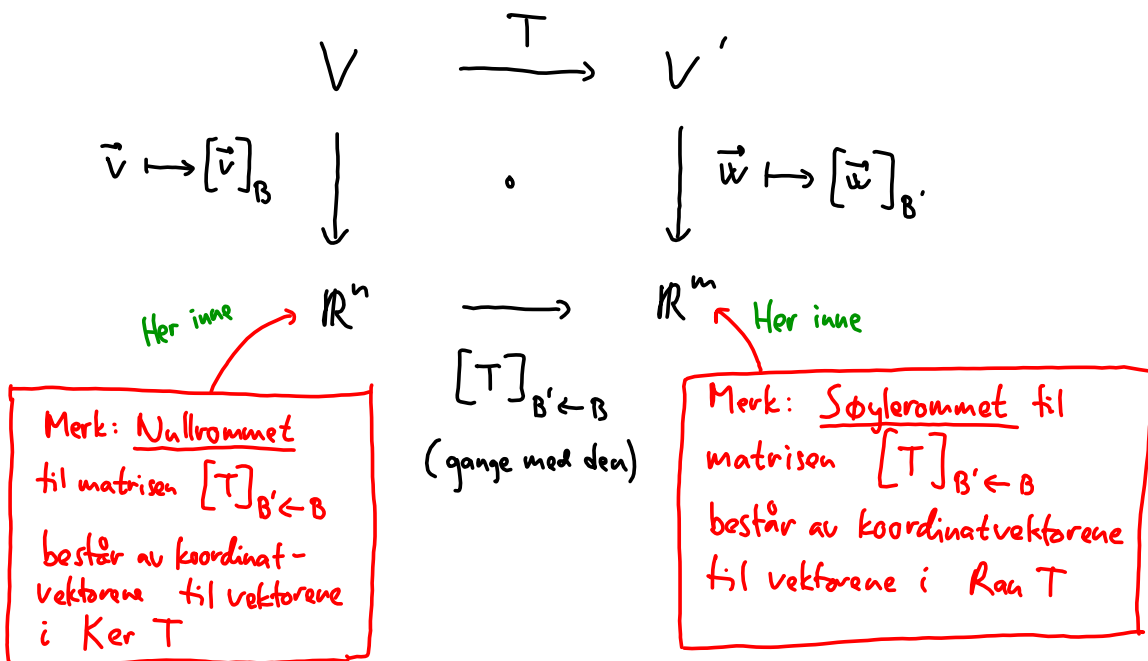 T
V V'
v⃗ ↦ [v⃗]_B w⃗ ↦ [w⃗]_B'
ℝ^n ℝ^m
Her inne
Her inne
[T]_B'←B
(gange med den)
Merk: Nullrommet
til matrisen [T]_B'←B
består av koordinat-
vektorene til vektorene
i Ker T
Merk: Søylerommet til
matrisen [T]_B'←B
består av koordinatvektorene
til vektorene i Ran T